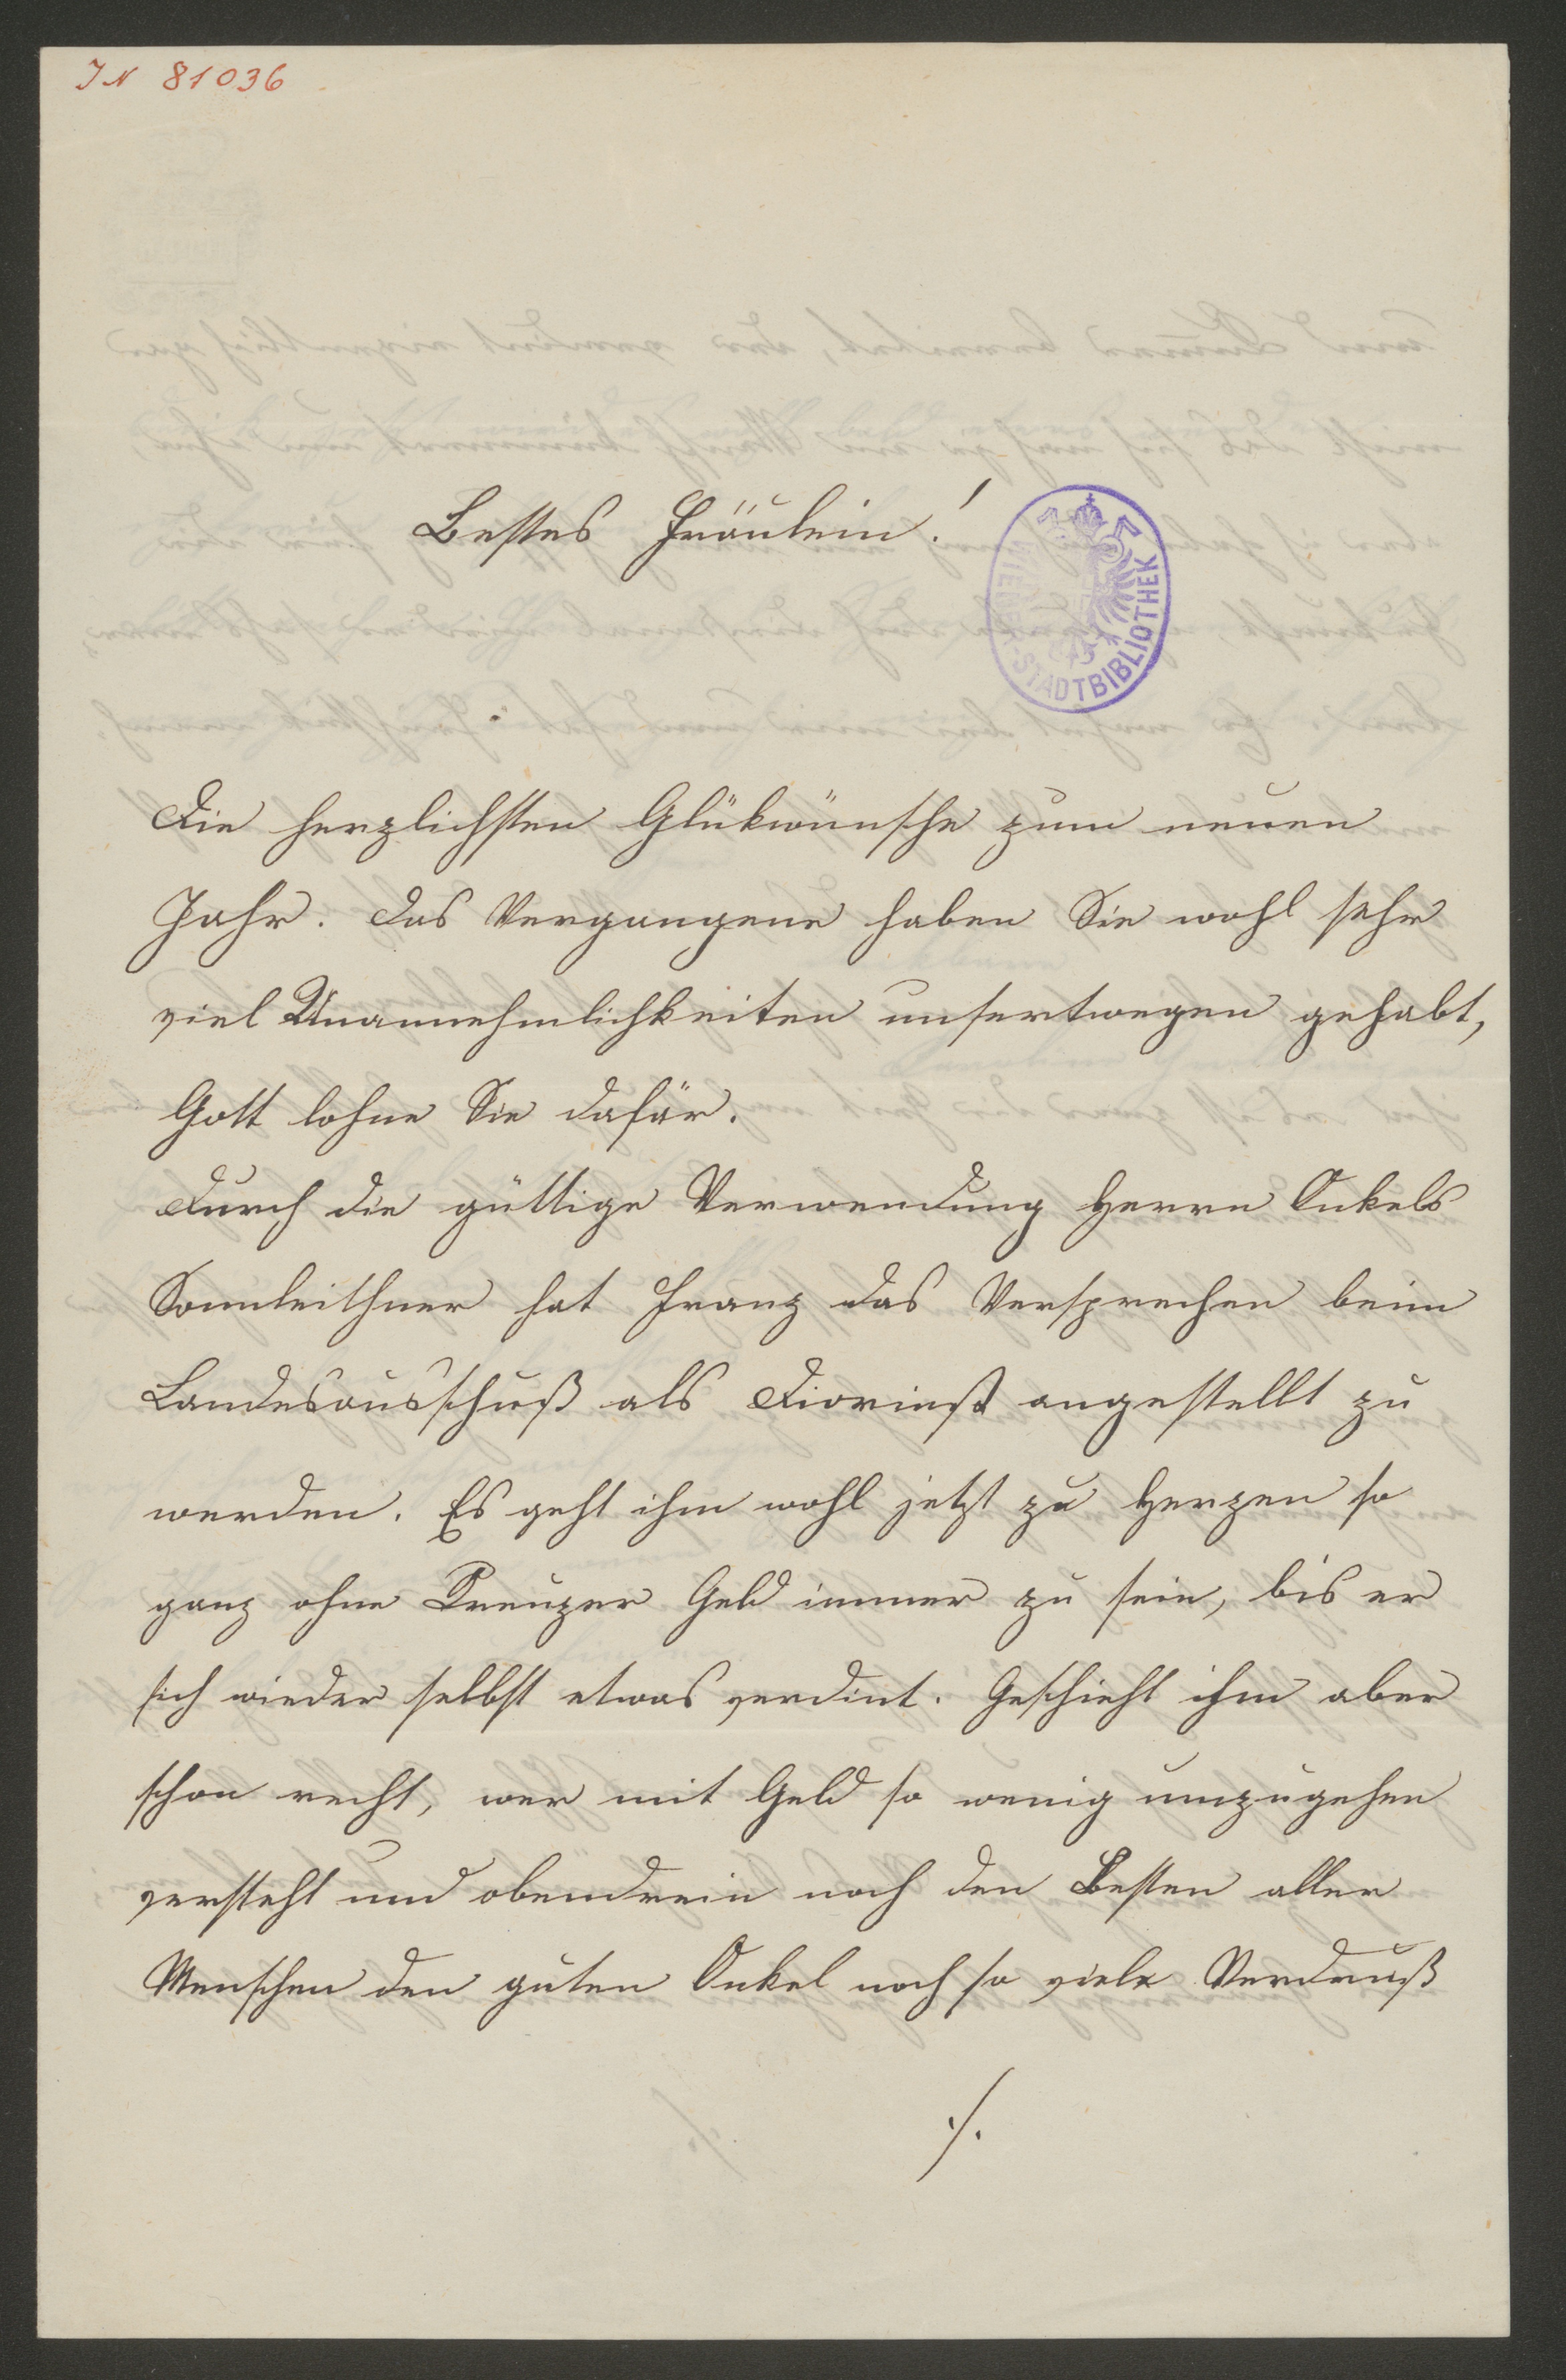 IN 81036
Bestes Fräulein!
WIENER-STADTBIBLIOTHEK
Die herzlichsten Glükwünsche zum neuen
Jahr. Das Vergangene haben Sie wohl sehr
viel Unannehmlichkeiten unsertwegen gehabt,
Gott lohne Sie dafür.
Durch die güttige Verwendung Herrn Onkels
Sonnleithner hat Franz das Versprechen beim
Landesausschuß als Diorinst angestellt zu
werden. Es geht ihm wohl jetzt zu Herzen so
ganz ohne Kreuzer Geld immer zu sein, bis er
sich wieder selbst etwas verdint. Geschieht ihm aber
schon recht, wer mit Geld so wenig umzugehen
versteht und obendrein noch den Besten aller
Menschen den guten Onkel noch so viele Verdruß
./.